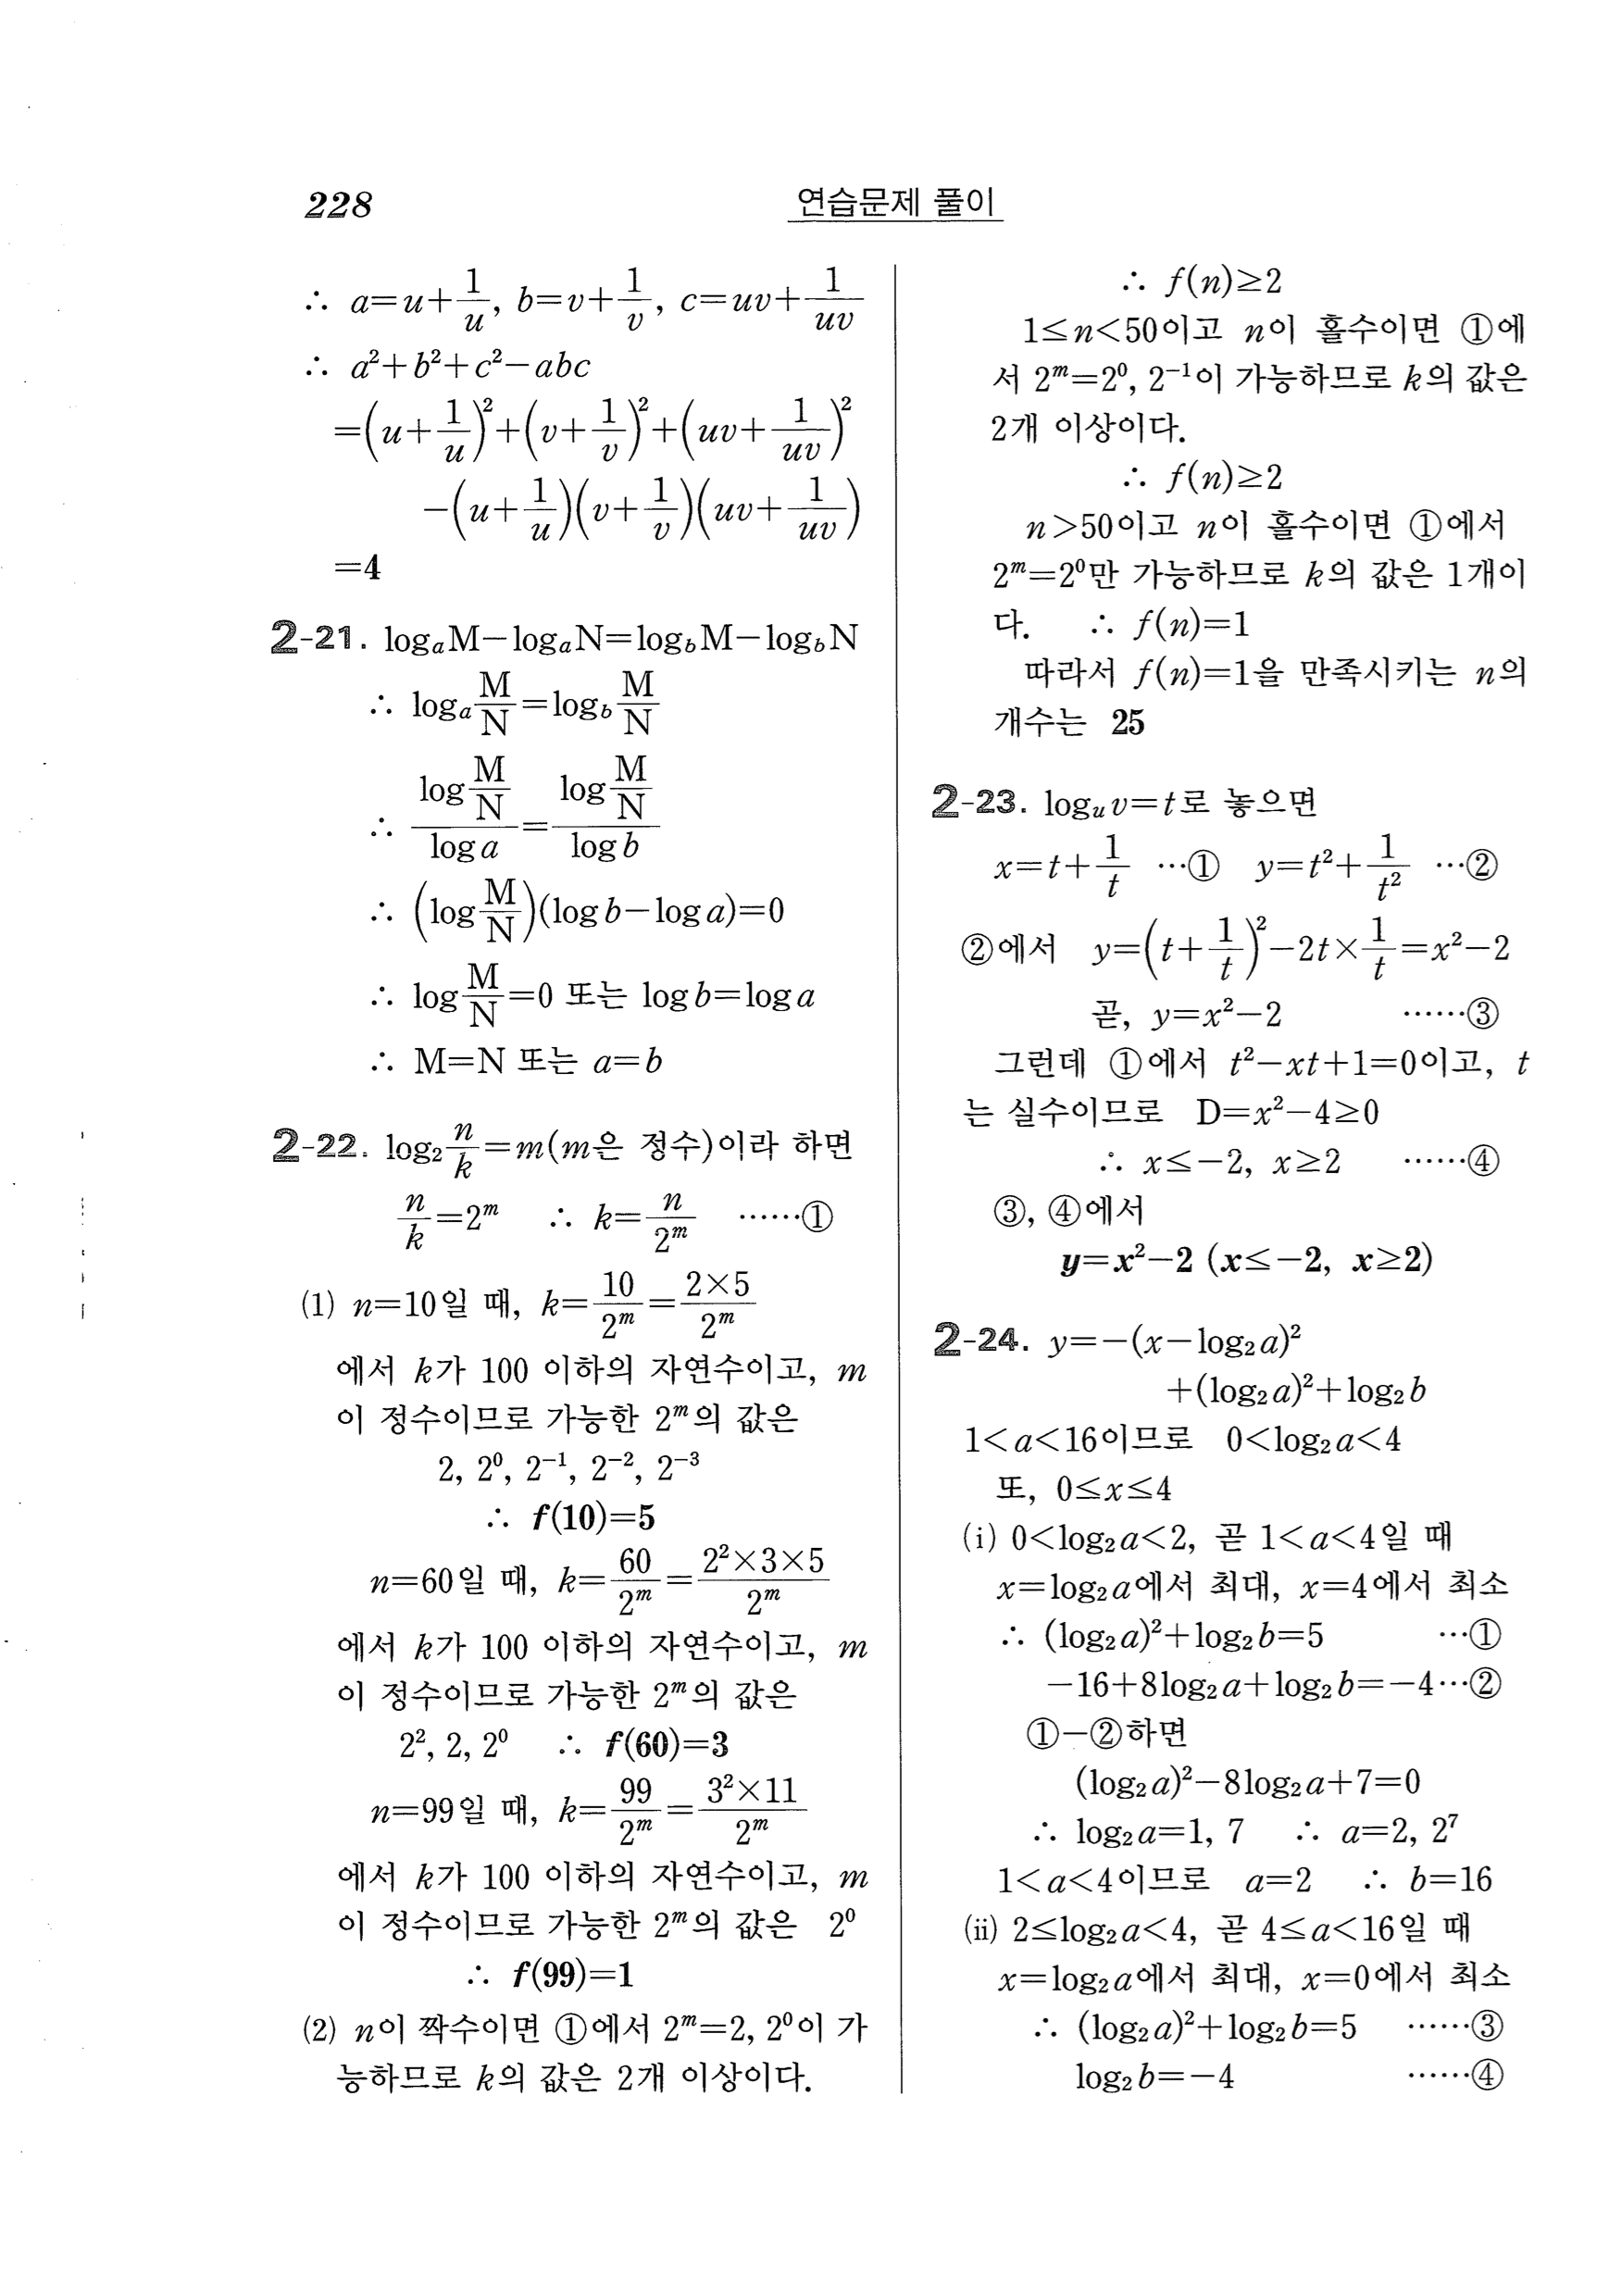 228
연습문제 풀이
∴ a=u+1/u, b=v+1/v, c=uv+1/uv
∴ a²+b²+c²−abc
=(u+1/u)²+(v+1/v)²+(uv+1/uv)²
−(u+1/u)(v+1/v)(uv+1/uv)
=4
2-21. logₐM−logₐN=log_bM−log_bN
∴ logₐ M/N=log_b M/N
∴ (log M/N)/(log a)=(log M/N)/(log b)
∴ (log M/N)(log b−log a)=0
∴ log M/N=0 또는 log b=log a
∴ M=N 또는 a=b
2-22. log₂ n/k=m(m은 정수)이라 하면
n/k=2ᵐ ∴ k=n/2ᵐ ……①
(1) n=10일 때, k=10/2ᵐ=(2×5)/2ᵐ
에서 k가 100 이하의 자연수이고, m
이 정수이므로 가능한 2ᵐ의 값은
2, 2⁰, 2⁻¹, 2⁻², 2⁻³
∴ f(10)=5
n=60일 때, k=60/2ᵐ=(2²×3×5)/2ᵐ
에서 k가 100 이하의 자연수이고, m
이 정수이므로 가능한 2ᵐ의 값은
2², 2, 2⁰ ∴ f(60)=3
n=99일 때, k=99/2ᵐ=(3²×11)/2ᵐ
에서 k가 100 이하의 자연수이고, m
이 정수이므로 가능한 2ᵐ의 값은 2⁰
∴ f(99)=1
(2) n이 짝수이면 ①에서 2ᵐ=2, 2⁰이 가
능하므로 k의 값은 2개 이상이다.
∴ f(n)≥2
1≤n<50이고 n이 홀수이면 ①에
서 2ᵐ=2⁰, 2⁻¹이 가능하므로 k의 값은
2개 이상이다.
∴ f(n)≥2
n>50이고 n이 홀수이면 ①에서
2ᵐ=2⁰만 가능하므로 k의 값은 1개이
다. ∴ f(n)=1
따라서 f(n)=1을 만족시키는 n의
개수는 25
2-23. logᵤ v=t로 놓으면
x=t+1/t …① y=t²+1/t² …②
②에서 y=(t+1/t)²−2t×1/t=x²−2
곧, y=x²−2 ……③
그런데 ①에서 t²−xt+1=0이고, t
는 실수이므로 D=x²−4≥0
∴ x≤−2, x≥2 ……④
③, ④에서
y=x²−2 (x≤−2, x≥2)
2-24. y=−(x−log₂a)²
+(log₂a)²+log₂b
1<a<16이므로 0<log₂a<4
또, 0≤x≤4
(i) 0<log₂a<2, 곧 1<a<4일 때
x=log₂a에서 최대, x=4에서 최소
∴ (log₂a)²+log₂b=5 …①
−16+8log₂a+log₂b=−4…②
①−②하면
(log₂a)²−8log₂a+7=0
∴ log₂a=1, 7 ∴ a=2, 2⁷
1<a<4이므로 a=2 ∴ b=16
(ii) 2≤log₂a<4, 곧 4≤a<16일 때
x=log₂a에서 최대, x=0에서 최소
∴ (log₂a)²+log₂b=5 ……③
log₂b=−4 ……④